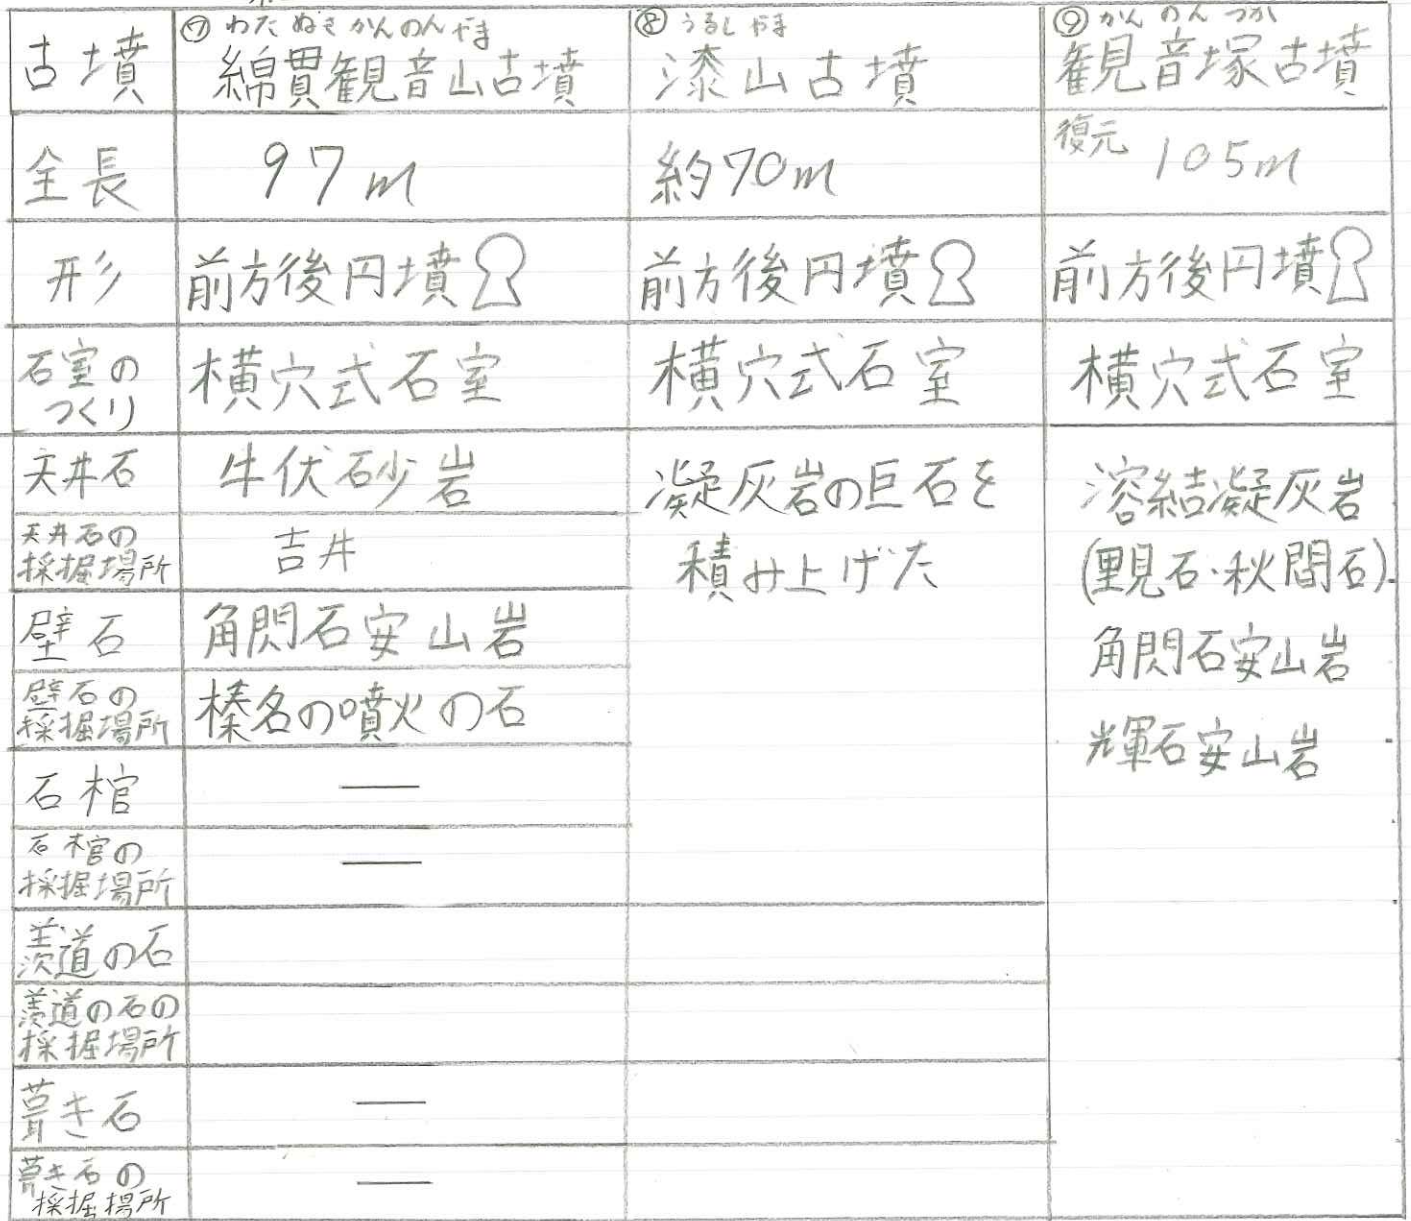 古墳
⑦わたぬきかんのんやま
綿貫観音山古墳
⑧うるしやま
漆山古墳
⑨かんのんつか
観音塚古墳
全長
97m
約70m
復元 105m
形
前方後円墳
前方後円墳
前方後円墳
石室の
つくり
横穴式石室
横穴式石室
横穴式石室
天井石
牛伏砂岩
凝灰岩の巨石を
積み上げた
溶結凝灰岩
(里見石・秋間石)
角閃石安山岩
輝石安山岩
天井石の
採掘場所
吉井
壁石
角閃石安山岩
壁石の
採掘場所
榛名の噴火の石
石棺
―
石棺の
採掘場所
―
羨道の石
羨道の石の
採掘場所
葺き石
―
葺き石の
採掘場所
―